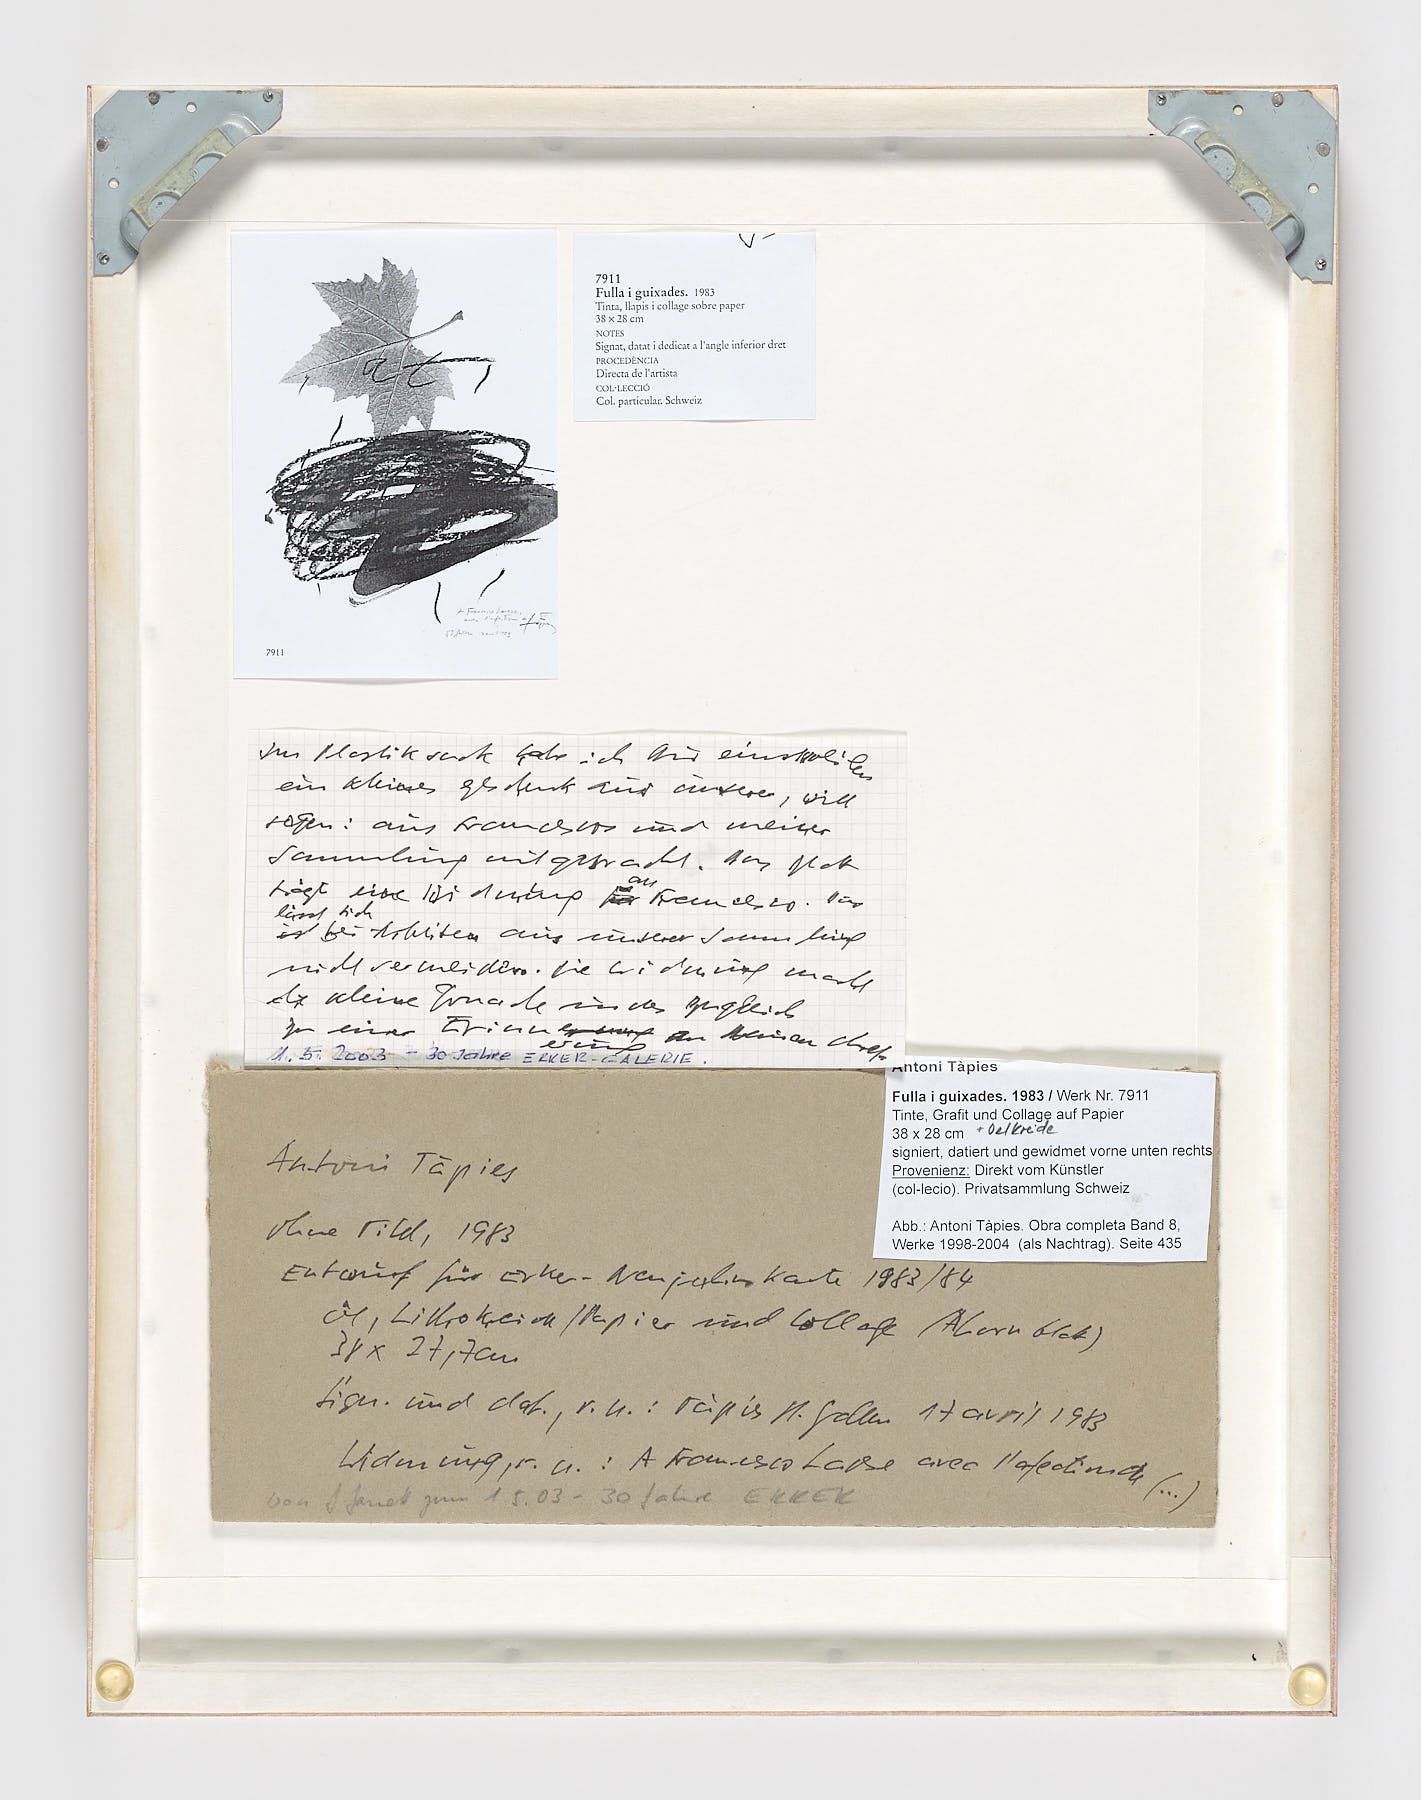 at
7911
7911
Fulla i guixades. 1983
Tinta, llapis i collage sobre paper
38 × 28 cm
NOTES
Signat, datat i dedicat a l'angle inferior dret
PROCEDÈNCIA
Directa de l'artista
COL·LECCIÓ
Col. particular. Schweiz
Im Plastiksack habe ich Dir einstweilen
ein kleines Geschenk aus unserer, will
sagen: aus Francescos und meiner
Sammlung mitgebracht. Das Blatt
trägt eine Widmung an Francesco. Das
lässt sich
bei Arbeiten aus unserer Sammlung
nicht vermeiden. Die Widmung macht
die kleine indes zugleich
zu einer Erinnerung an meinen
1.5.2003 - 30 Jahre ERKER-GALERIE.
Antoni Tàpies
Fulla i guixades. 1983 / Werk Nr. 7911
Tinte, Grafit und Collage auf Papier
38 x 28 cm + Oelkreide
signiert, datiert und gewidmet vorne unten rechts
Provenienz: Direkt vom Künstler
(col-lecio). Privatsammlung Schweiz
Abb.: Antoni Tàpies. Obra completa Band 8,
Werke 1998-2004 (als Nachtrag). Seite 435
Antoni Tàpies
Ohne Titel, 1983
Entwurf für Erker-Neujahrskarte 1983/84
Öl, Lithokreide/Papier und Collage (Ahornblatt)
38 x 27,7cm
Sign. und dat., r. u.: Tàpies St. Gallen 17 avril 1983
Widmung, r. u.: A Francesco Larese avec l'afection de (...)
von zum 1 5.03 - 30 Jahre ERKER